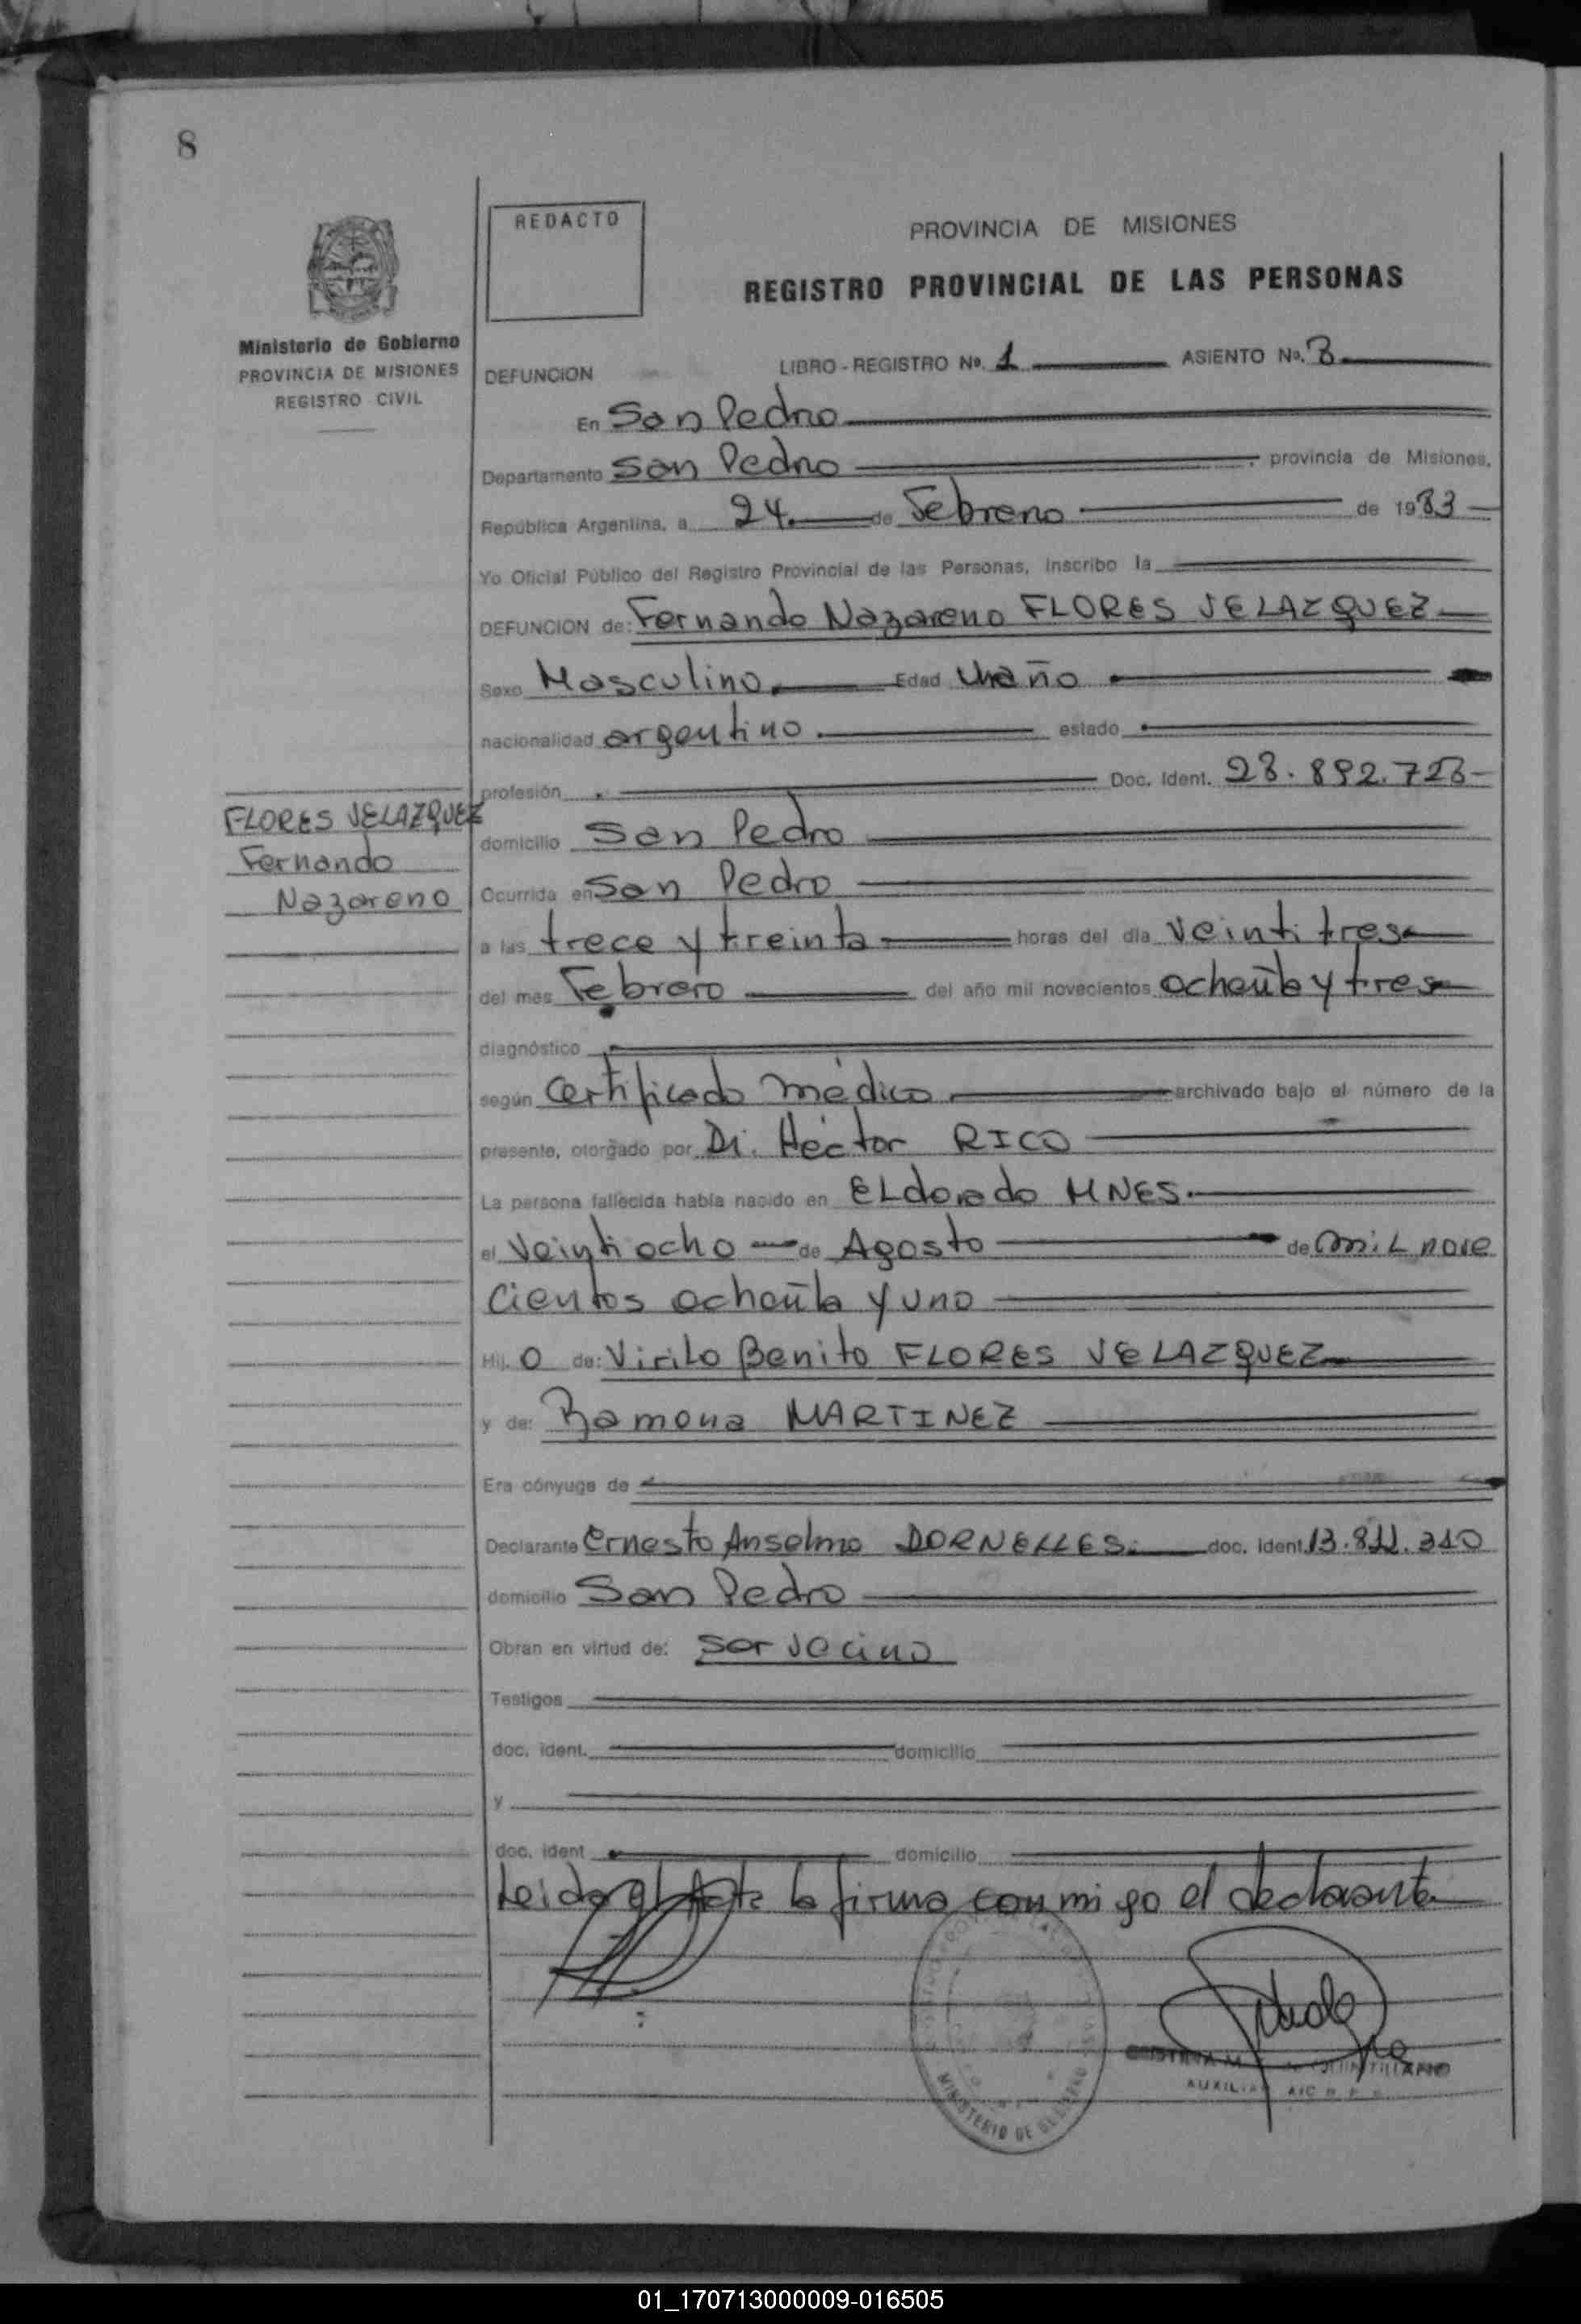 8
REDACTO
PROVINCIA DE MISIONES
REGISTRO PROVINCIAL DE LAS PERSONAS
Ministerio de Gobierno
PROVINCIA DE MISIONES
REGISTRO CIVIL
DEFUNCION LIBRO - REGISTRO Nº. 1 ASIENTO Nº. 8
En San Pedro
Departamento San Pedro, provincia de Misiones,
República Argentina, a 24 de Febrero de 1983
Yo Oficial Público del Registro Provincial de las Personas, inscribo la
DEFUNCION de: Fernando Nazareno FLORES VELAZQUEZ
Sexo Masculino Edad Un año
nacionalidad argentino estado
profesión Doc. Ident. 28.892.728
FLORES VELAZQUEZ
Fernando
Nazareno
domicilio San Pedro
Ocurrida en San Pedro
a las trece y treinta horas del día veintitres
del mes Febrero del año mil novecientos ochenta y tres
diagnóstico
según certificado médico archivado bajo el número de la
presente, otorgado por Dr. Héctor RICO
La persona fallecida había nacido en ELdorado MNES.
el Veintiocho de Agosto de miL nove
cientos ochenta y uno
Hij o de: ViriLo Benito FLORES VELAZQUEZ
y de: Ramona MARTINEZ
Era cónyuge de
Declarante Ernesto Anselmo DORNELLES. doc. Ident. 13.811.310
domicilio San Pedro
Obran en virtud de: ser vecino
Testigos
doc. ident. domicilio
y
doc. ident domicilio
Leida el Acta la firma conmigo el declarante
MINISTERIO DE GOBIERNO
QUINTILLANO
AUXILIAR
01_170713000009-016505